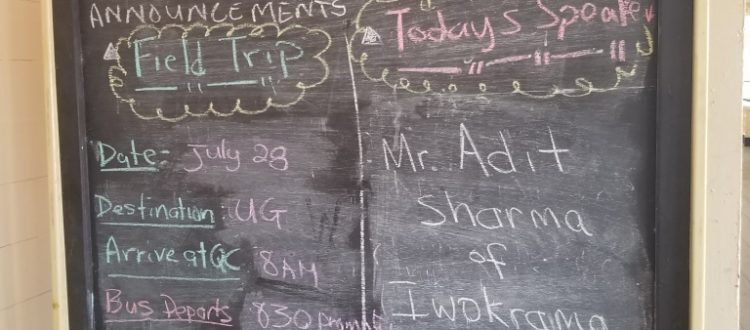 ANNOUNCEMENTS
Field Trip
Date: July 28
Destination: UG
Arrive at QC 8AM
Bus Departs 830
Todays Speaker
Mr. Adit
Sharma
of
Iwokrama